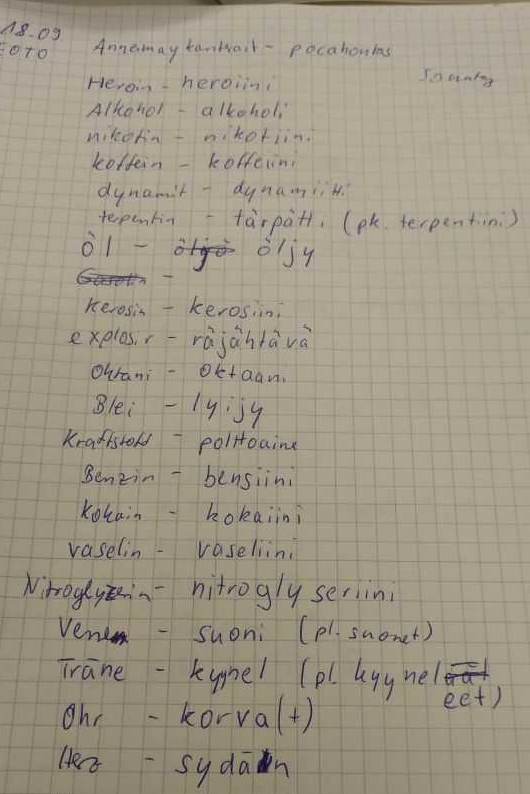 18.09
Annemay kantrait - pocahontas
Sonntag
Heroin - heroiini
Alkohol - alkoholi
nikotin - nikotiini
koffein - koffeiini
dynamit - dynamiitti
terpentin - tärpätti (pk. terpentiini)
öl - öljy
-
Kerosin - kerosiini
explosiv - räjähtävä
Oktani - oktaani
Blei - lyijy
Kraftstoff - polttoaine
Benzin - bensiini
Kokain - kokaiini
vaselin - vaseliini
Nitroglyzerin - nitroglyseriini
Vene - suoni (pl. suonet)
Träne - kyynel (pl. kyynel
eet)
Ohr - korva(t)
Herz - sydän